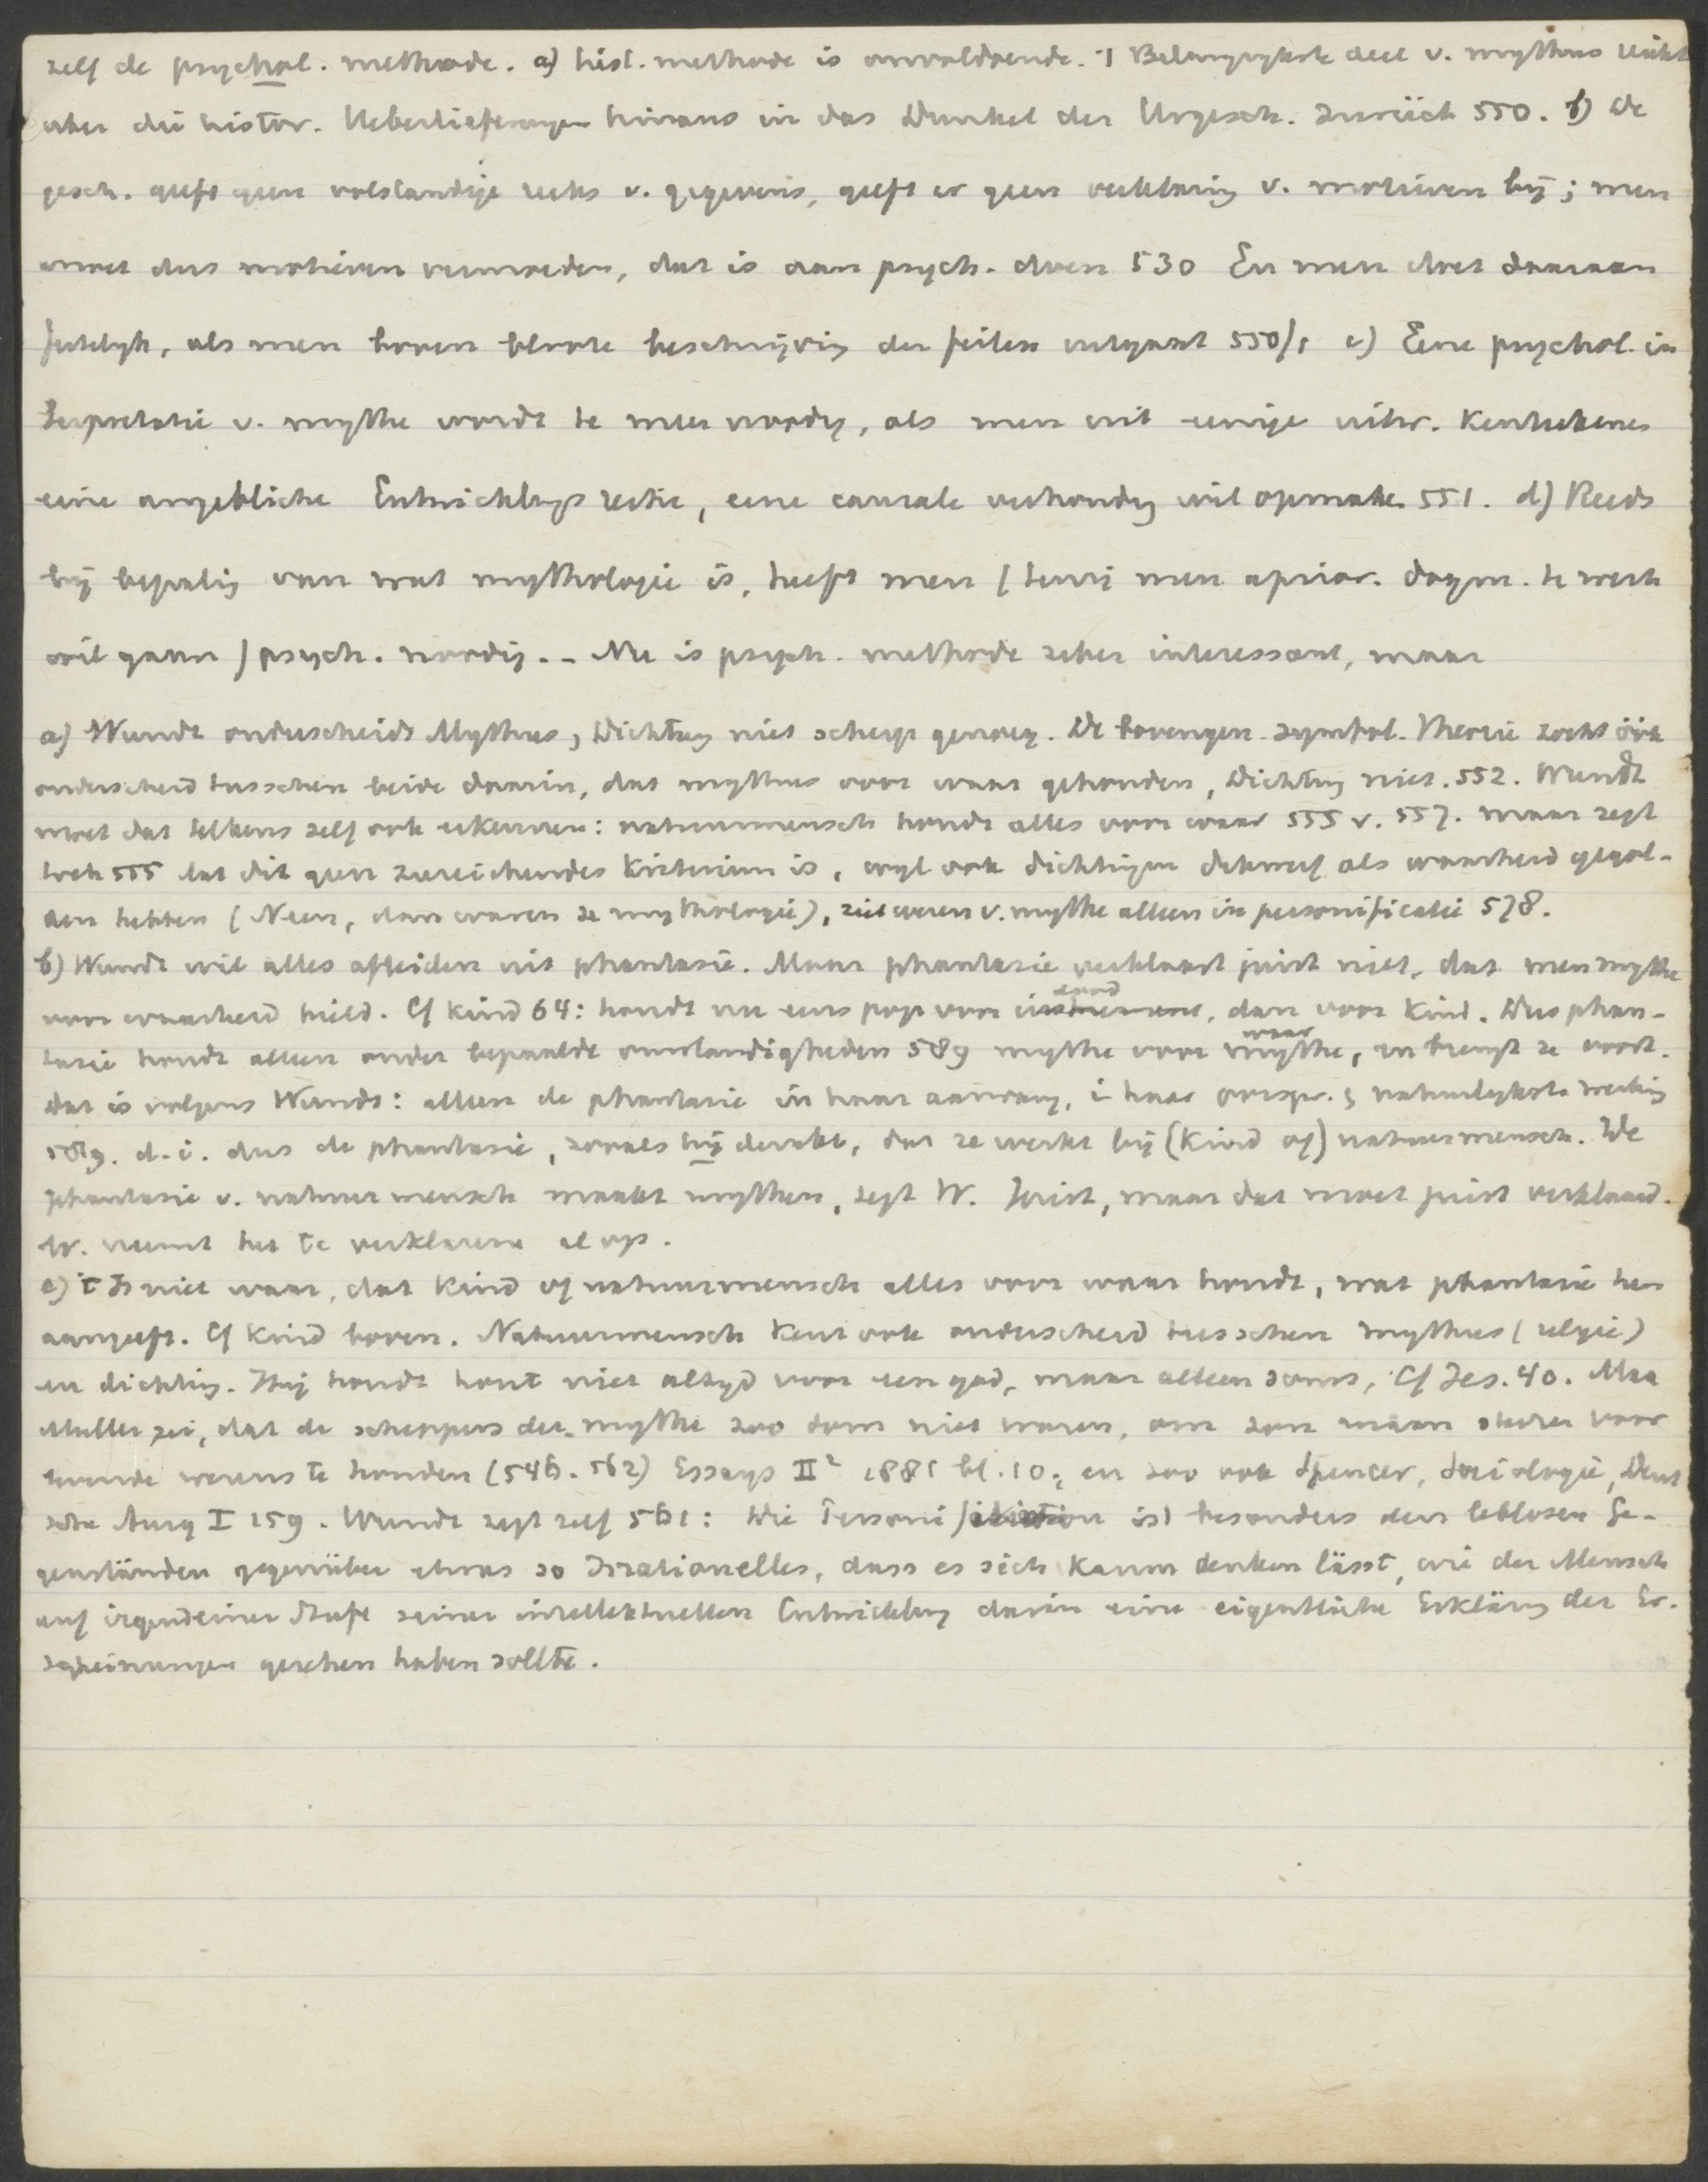 zelf de psychol. methode. a) hist. methode is onvoldoende. 1 Belangrykste deel v. mythus reicht
über die histor. Ueberlieferungen hinaus in das Dunkel der Urgesch. zurück 550. b) De
gesch. geeft geen volstandige reeks v. gegevens, geeft er geen verklaring v. motieven bij; men
moet dus motieven vermoeden, dat is aan psych. doen 530 En men doet daaraan
feitelyk, als men boven bloote beschrijving der feiten uitgaat 550/1 c) Eene psychol. in
terpretatie v. mythe wordt te meer noodig, als men uit eenige uitw. Kentekenen
eine angebliche Entwicklungs reihe, eene causale verhouding wil opmaken 551. d) Reeds
bij bepaling van wat mythologie is, heeft men (tenzij men aprior. dogm. te werk
wil gaan) psych. noodig. - Nu is psych. methode zeker interessant, maar
a) Wundt onderscheidt Mythus, Dichtung niet scherp genoeg. De bovengen. symbol. Theorie zocht ook
onderscheid tusschen beide daarin, dat mythus voor waar gehouden, Dichtung niet. 552. Wundt
moet dat telkens zelf ook erkennen: natuurmensch houdt alles voor waar 555 v. 557. maar zegt
toch 555 dat dit geen zureichendes Kriterium is, wyl ook dichtingen dikwerf als waarheid gegol-
den hebben (Neen, dan waren ze mythologie), ziet wezen v. mythe alleen in personificatie 578.
b) Wundt wil alles afleiden uit phantasie. Maar phantasie verklaart juist niet, dat men mythe
voor waarheid hield. Cf Kind 64: houdt nu eens pop voor , dan voor Kind. Dus phan-
tasie houdt alleen onder bepaalde omstandigheden 589 mythe voor waar mythe, en brengt ze voort.
dat is volgens Wundt: alleen de phantasie in haar aanvang, i haar oorspr. & natuurlykste werking
589. d.i. dus de phantasie, zooals hij denkt, dat ze werkt bij (Kind of) natuurmensch. De
phantasie v. natuurmensch maakt mythen, zegt W. Juist, maar dat moet juist verklaard.
W. neemt het te verklarene al op.
c) 't Is niet waar, dat Kind of natuurmensch alles voor waar houdt, wat phantasie hen
aangeeft. Cf Kind boven. Natuurmensch Kent ook onderscheid tusschen mythus (religie)
en dichting. Hij houdt hout niet altyd voor een god, maar alleen soms, Cf Jes. 40. Max
Muller zei, dat de scheppers der mythe zoo dom niet waren, om zon maan sterren voor
levende wezens te houden (546. 562) Essays II² 1881 bl. 10; en zoo ook Spencer, Sociologie, Deut
sche Ausg I 159. Wundt zegt zelf 561: Die Personification ist besonders den leblosen Ge-
genständen gegenüber etwas so Irrationelles, dass es sich Kaum denken lässt, wie der Mensch
auf irgendeiner Stufe seiner intellektuellen Entwicklung darin eine eigentliche Erklärung der Er-
scheinungen gesehen haben sollte.